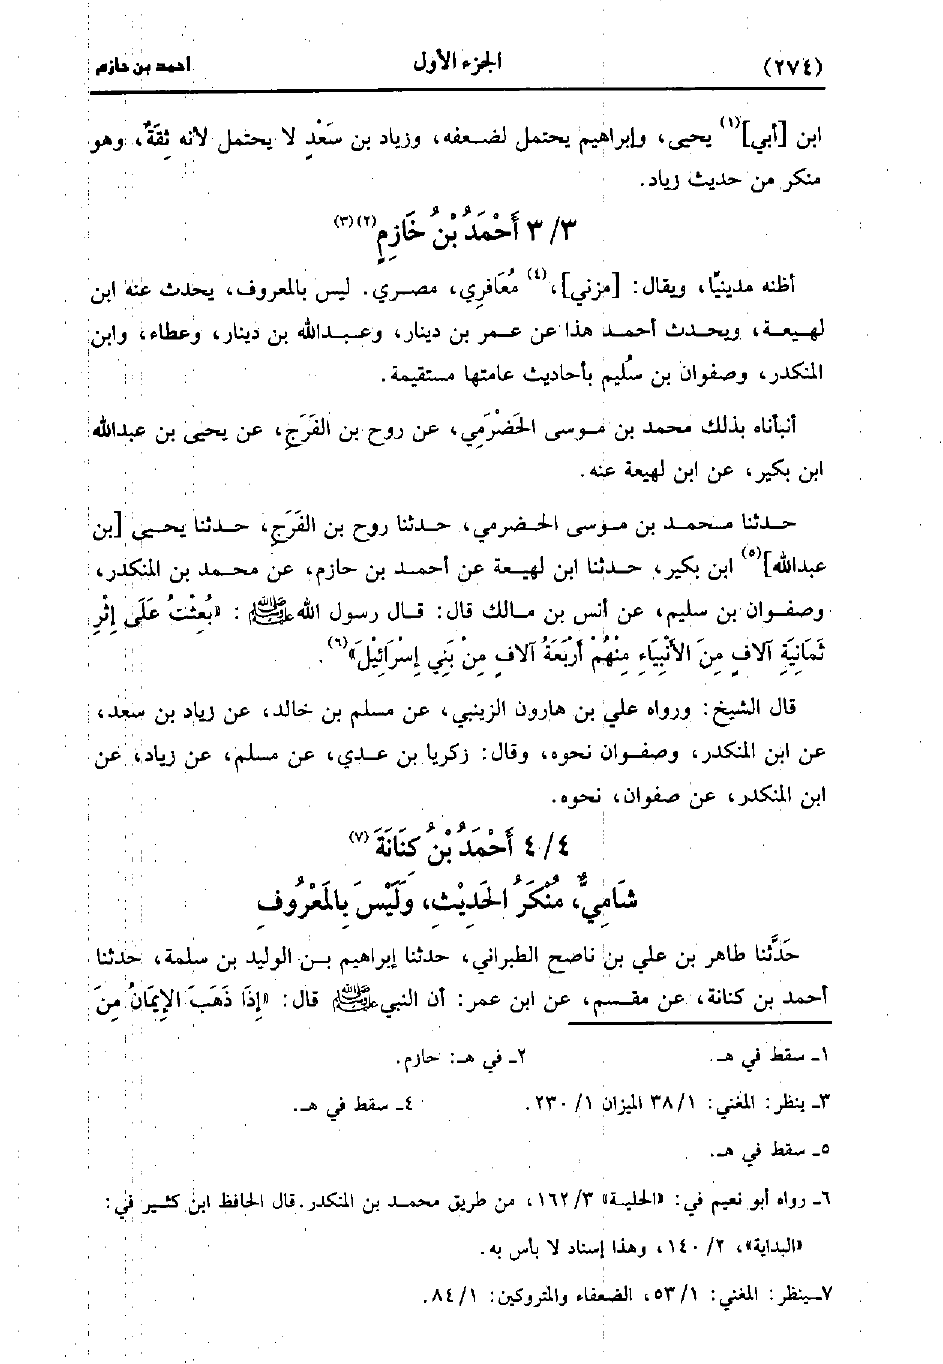 (٢٧٤) الجزء الأول احمد بن حازم
ابن [أبي](١) يحيى، وإبراهيم يحتمل لضعفه، وزياد بن سَعْدٍ لا يحتمل لأنه ثِقَةٌ، وهو
منكر من حديث زياد.
٣/ ٣ أَحْمَدُ بْنُ خَازِمٍ(٢)(٣)
أظنه مدينيًا، ويقال: [مزني]،(٤) مُعَافري، مصري. ليس بالمعروف، يحدث عنه ابن
لهيعة، ويحدث أحمد هذا عن عمر بن دينار، وعبدالله بن دينار، وعطاء، وابن
المنكدر، وصفوان بن سُليم بأحاديث عامتها مستقيمة.
أنبأناه بذلك محمد بن موسى الحَضْرَمي، عن روح بن الفَرَجِ، عن يحيى بن عبدالله
ابن بكير، عن ابن لهيعة عنه.
حدثنا محمد بن موسى الحضرمي، حدثنا روح بن الفَرَجِ، حدثنا يحيى [بن
عبدالله](٥) ابن بكير، حدثنا ابن لهيعة عن أحمد بن حازم، عن محمد بن المنكدر،
وصفوان بن سليم، عن أنس بن مالك قال: قال رسول الله ﷺ: «بُعِثْتُ عَلَى إِثْرِ
ثَمَانِيَةِ آلافٍ مِنَ الأَنْبِيَاءِ مِنْهُمْ أَرْبَعَةُ آلافٍ مِنْ بَنِي إِسْرَائِيْلَ»(٦).
قال الشيخ: ورواه علي بن هارون الزينبي، عن مسلم بن خالد، عن زياد بن سعد،
عن ابن المنكدر، وصفوان نحوه، وقال: زكريا بن عدي، عن مسلم، عن زياد، عن
ابن المنكدر، عن صفوان، نحوه.
٤/ ٤ أَحْمَدُ بْنُ كِنَانَةَ(٧)
شَامِيٌّ، مُنْكَرُ الحَدِيْثِ، وَلَيْسَ بِالمَعْرُوفِ
حَدَّثنا طاهر بن علي بن ناصح الطبراني، حدثنا إبراهيم بن الوليد بن سلمة، حدثنا
أحمد بن كنانة، عن مقسم، عن ابن عمر: أن النبي ﷺ قال: «إِذَا ذَهَبَ الإِيمَانُ مِنَ
١ـ سقط في هـ. ٢ـ في هـ: حازم.
٣ـ ينظر: المغني: ١/ ٣٨ الميزان ١/ ٢٣٠. ٤ـ سقط في هـ.
٥ـ سقط في هـ.
٦ـ رواه أبو نعيم في: «الحلية» ٣/ ١٦٢، من طريق محمد بن المنكدر.قال الحافظ ابن كثير في:
«البداية»، ٢/ ١٤٠، وهذا إسناد لا بأس به.
٧ـ ينظر: المغني: ١/ ٥٣، الضعفاء والمتروكين: ١/ ٨٤.